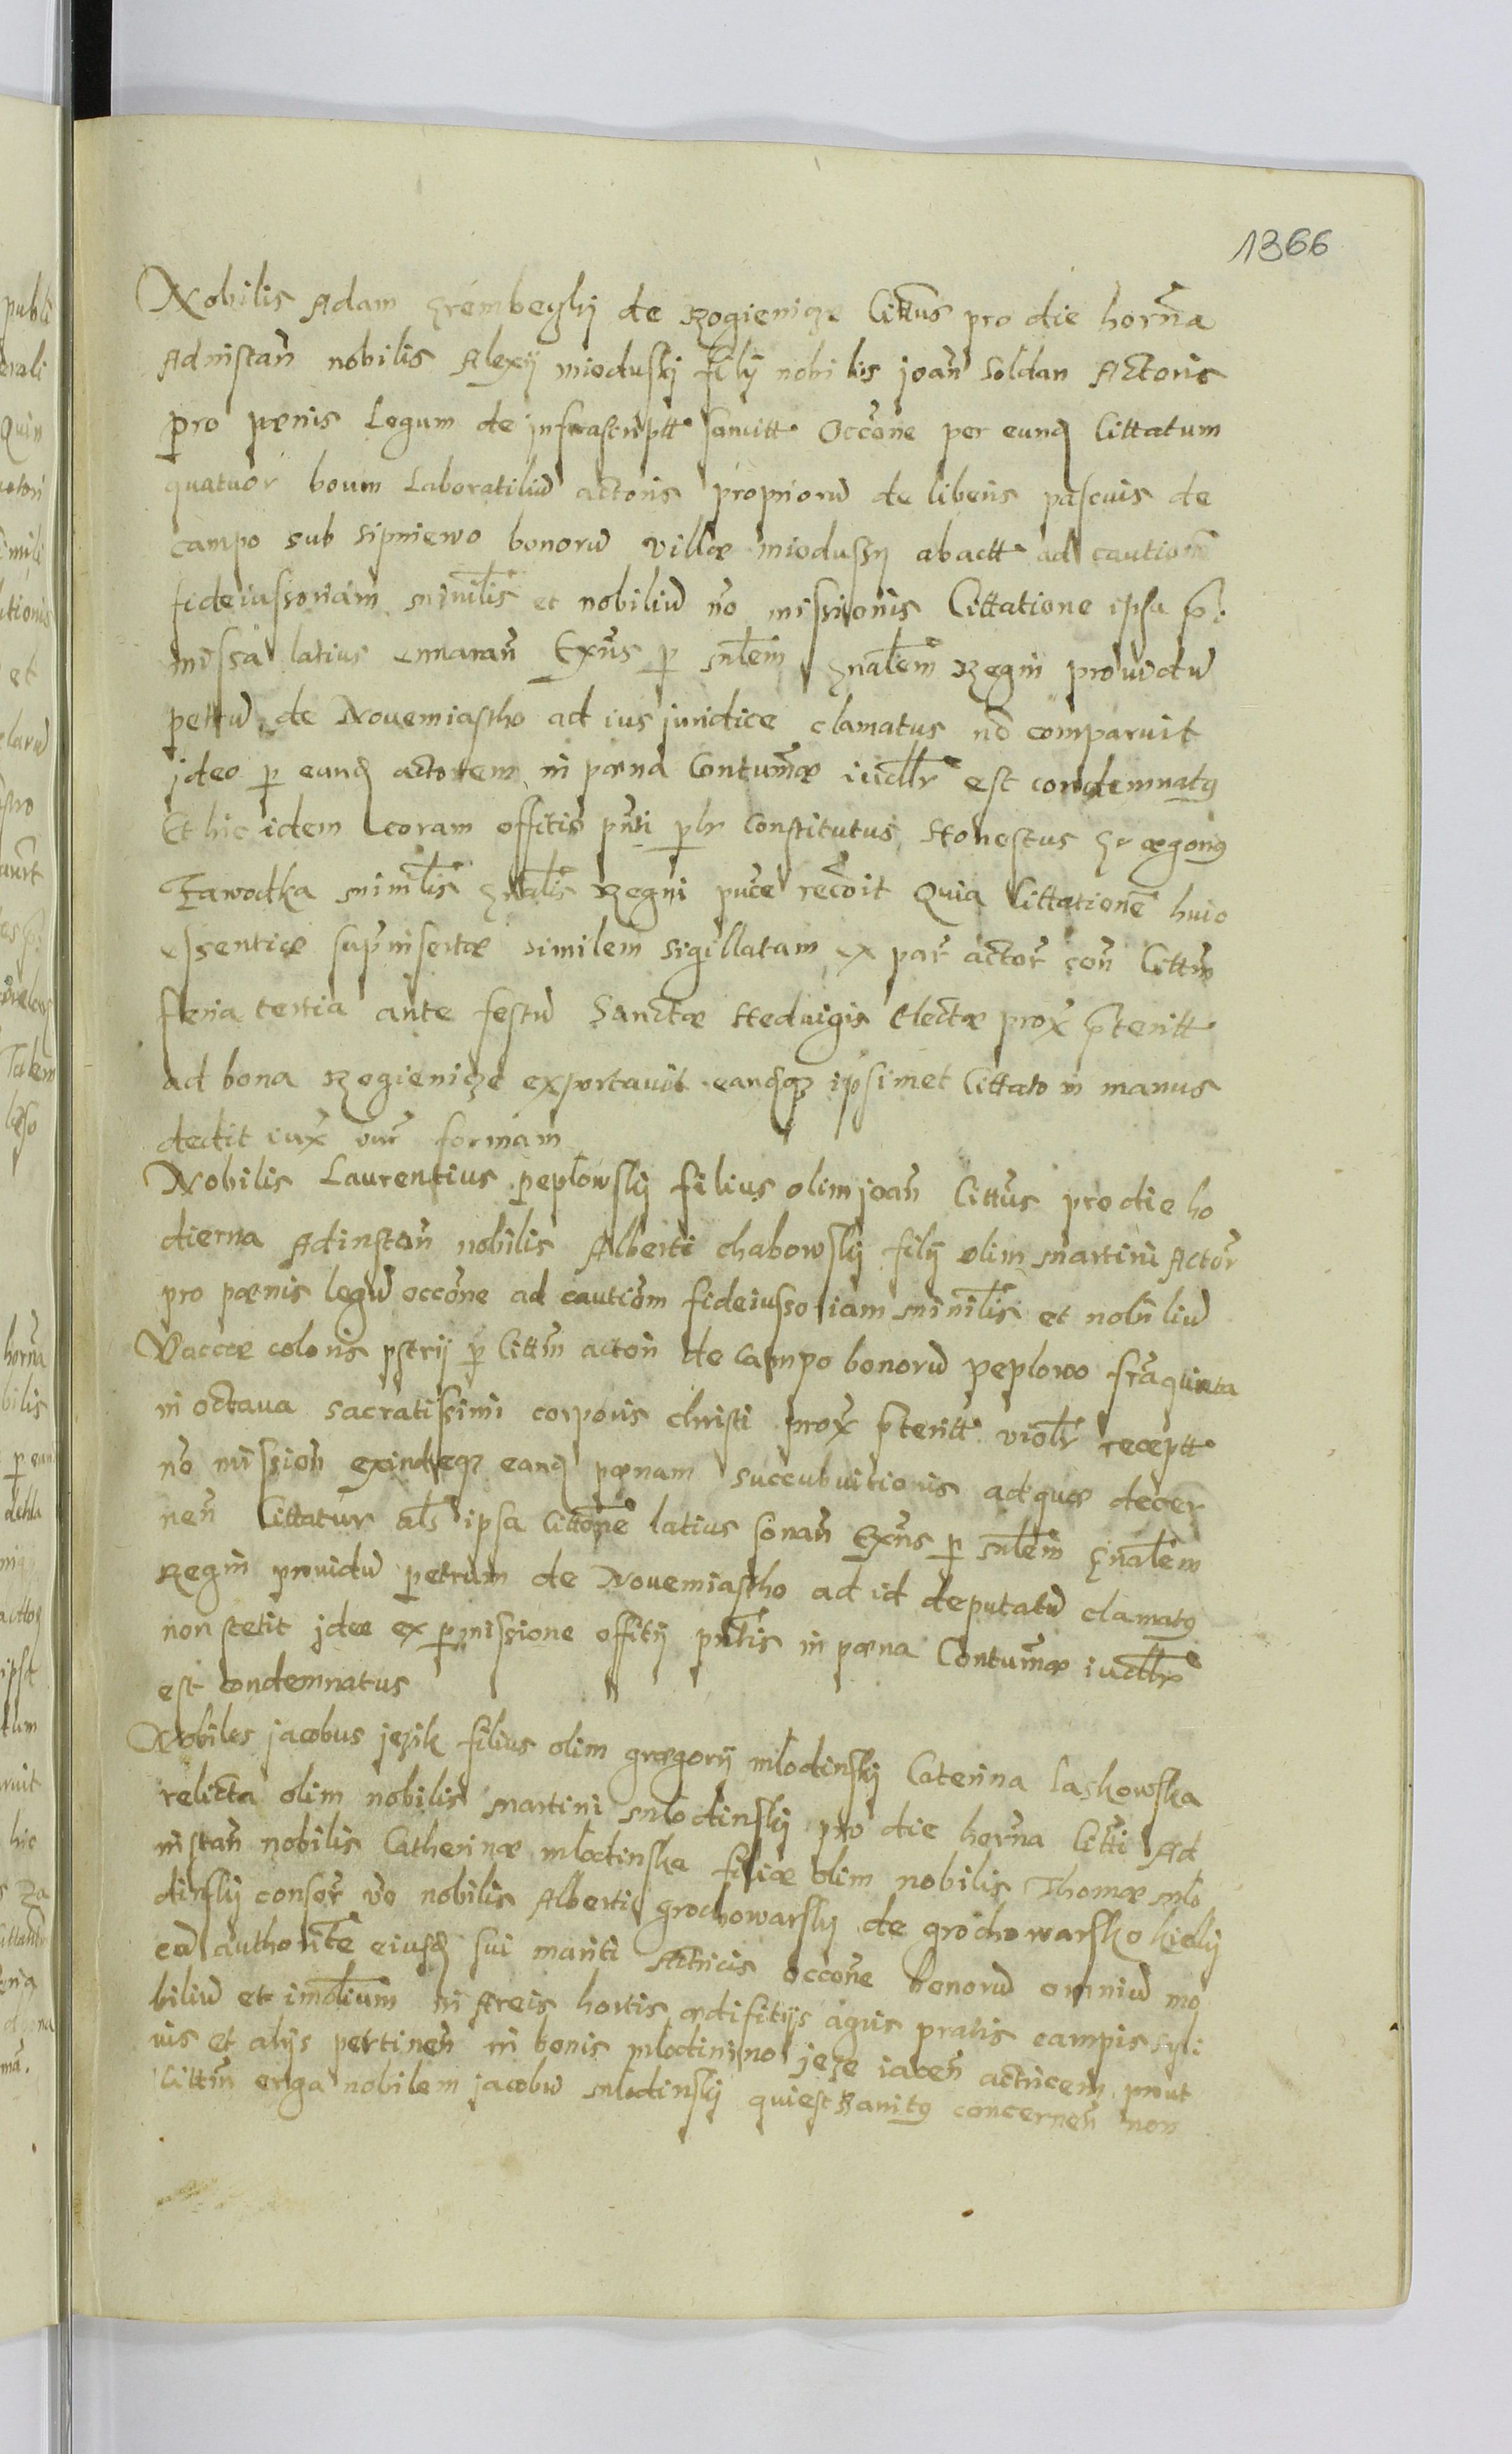 1366
Nobilis Adam Grembeczky de Rogienicze Cittus pro die horna
Ad instan nobilis Alexy miodusky fily nobilis joan Soldan Actoris
pro pœnis Legum de jnfrascriptt sancitt Occone per eund Cittatum
quatuor boum Laboratiliu actoris proprioru de liberis pascuis de
campo sub sipniewo bonoru villæ miodussy abactt ad cautione
fideiussoriam minilis et nobiliu no missionis Cittatione ipsa p
missa latius enarran Exns p mlem Gnalem Regni prouidu
petru de Nouemiastho ad ius juridice clamatus no comparuit
jdeo p eund actorem in pœna Contumæ iudlr est condemnatq
Et hic idem coram offitis pnti plr Constitutus Honestus Grægoriq
Zawodka minilis Gnalis Regni puce recoit Quia Cittatione huic
essentiæ supinsertæ similem sigillatam ex par actor con Cittm
feria tertia ante festu Sanctæ Hedvigis Electæ prox pteritt
ad bona Rogienicze exportauit eandqz ipsimet Cittato in manus
dedit iux iur formam
Nobilis Laurentius peplowsky filius olim joan Cittus pro die ho
dierna Ad instan nobilis Alberti chabowsky fily olim martini Actor
pro pœnis legu occone ad cautiom fideiussoriam minilis et nobiliu
Vaccæ coloris pstrij p Cittm actori de campo bonoru peplowo fra quinta
in octaua sacratissimi corporis christi prox pteritt violr receptt
no mission exindeqz eand pœnam succubuitionis ad quæ decer
nen Cittatur als ipsa Cittone latius sonan Exns p mlem Gnalem
Regni prouidu petrum de Nouemiastho ad id deputatu clamatq
non stetit jdeo ex pmissione offitij pntis in pœna Contumæ iudlr
est condemnatus
Nobiles jacobus jezik filius olim grægorij mlodinsky Caterina Laskowska
relicta olim nobilis martini mlodinsky pro die horna Citti Ad
instan nobilis Catherinæ mlodinska filiæ olim nobilis Thomæ mlo
dinsky consor vo nobilis Alberti grochowarsky de grochowarsko kielij
cu authoritte eiusd sui mariti Actricis occone bonoru omniu mo
biliu et imoblium in Areis hortis ædifitijs agris pratis campis syl
uis et alijs pertinen in bonis mlodinino jeze iacen actricem prout
Cittm erga nobilem jacobu mlodinsky qui est Banitq concernen non